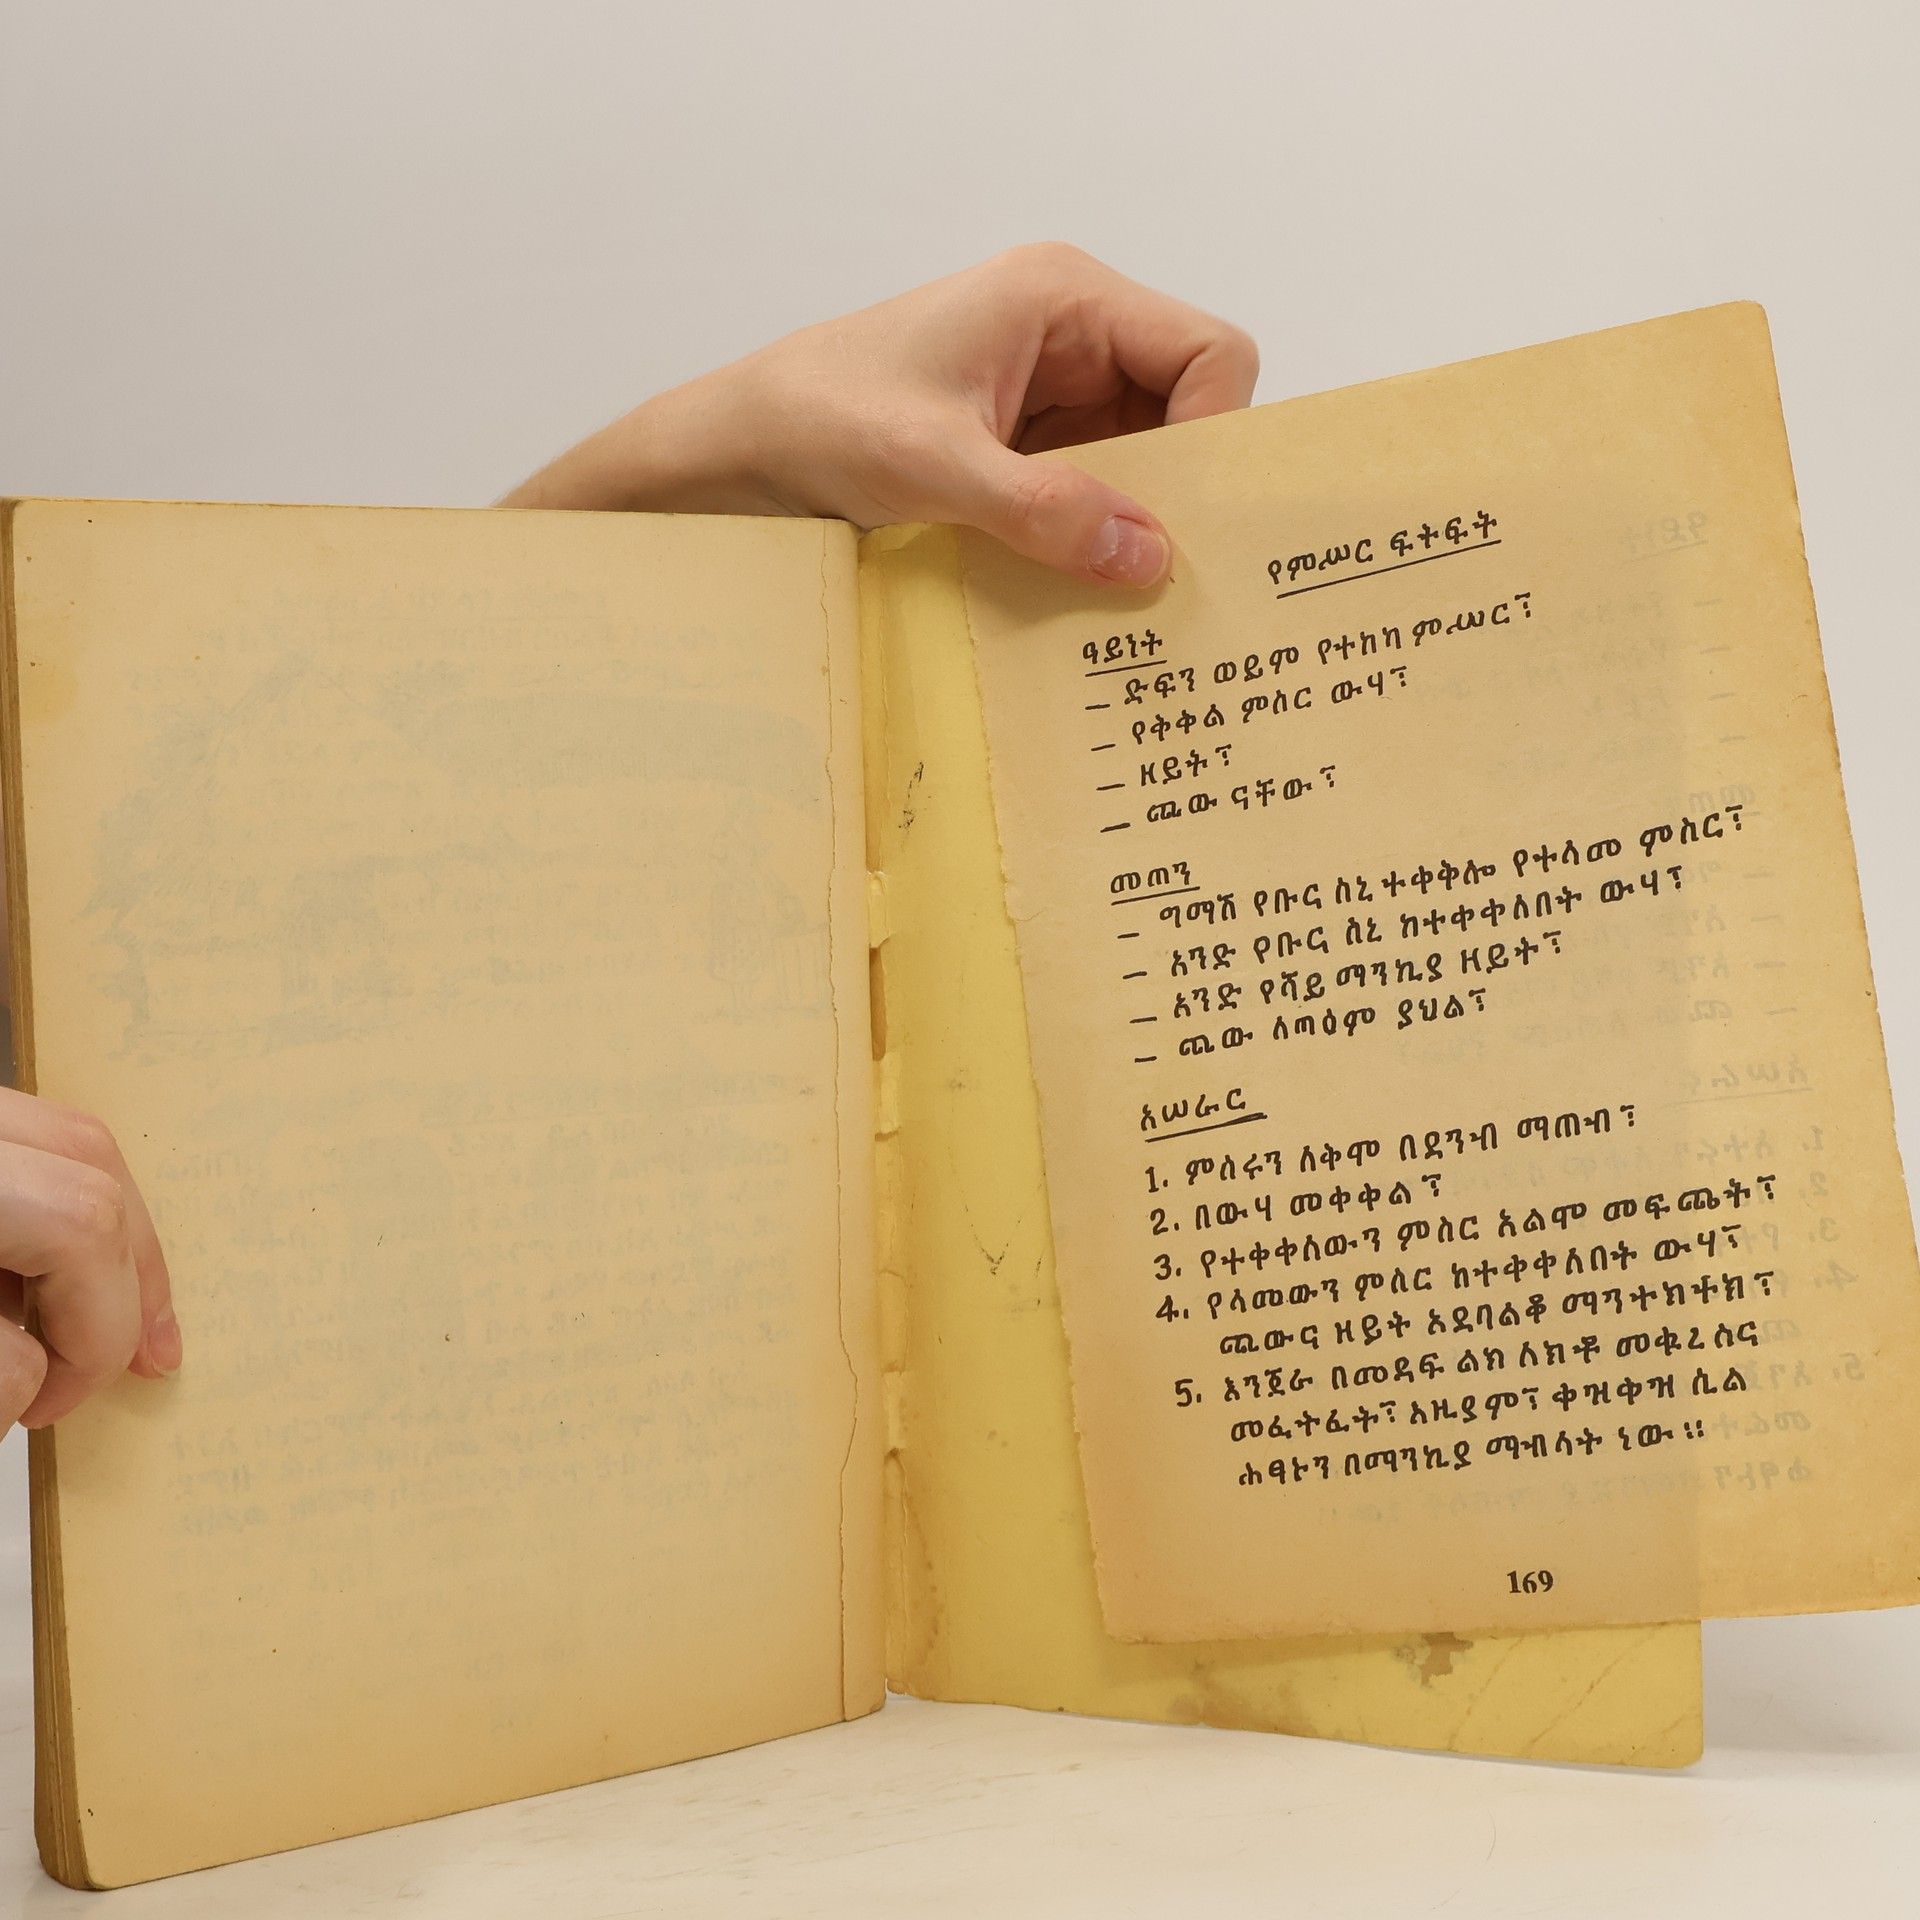 የምሥር ፍትፍት
ዓይነት
— ድፍን ወይም የተከካ ምሥር፤
— የቅቅል ምስር ውሃ፤
— ዘይት፤
— ጨው ናቸው፤
መጠን
— ግማሽ የቡና ስኒ ተቀቅሎ የተላመ ምስር፤
— አንድ የቡና ስኒ ከተቀቀለበት ውሃ፤
— አንድ የሻይ ማንኪያ ዘይት፤
— ጨው ለጣዕም ያህል፤
አሠራር
1. ምስሩን ለቅሞ በደንብ ማጠብ፤
2. በውሃ መቀቀል፤
3. የተቀቀለውን ምስር አልሞ መፍጨት፤
4. የላመውን ምስር ከተቀቀለበት ውሃ፤
ጨውና ዘይት አደባልቆ ማንተክተክ፤
5. እንጀራ በመዳፍ ልክ ለክቶ መቁረስና
መፈትፈት፤ እዚያም፤ ቀዝቀዝ ሲል
ሕፃኑን በማንኪያ ማብላት ነው።
169